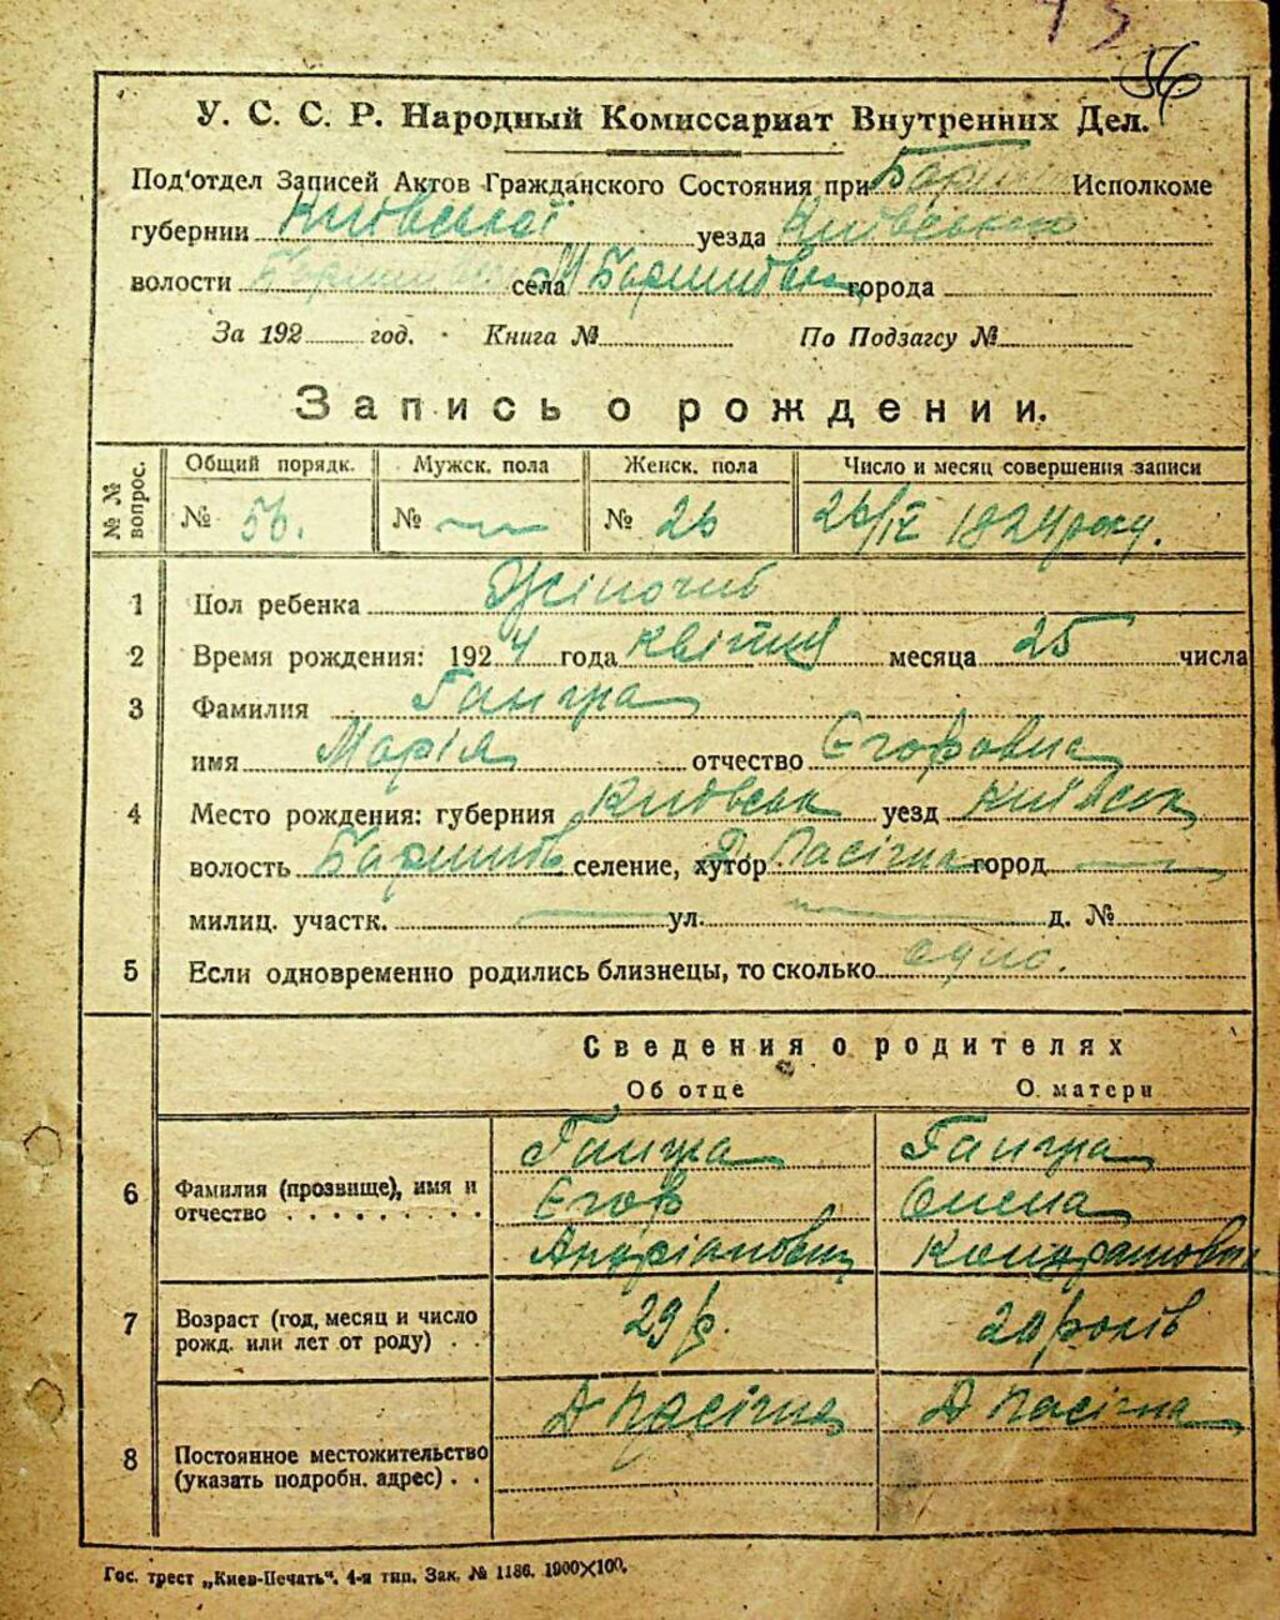 56
У. С. С. Р. Народный Комиссариат Внутренних Дел.
Под'отдел Записей Актов Гражданского Состояния при Исполкоме
губернии Київської уезда Київського
волости села М Баришовка города
За 192 год. Книга № По Подзагсу №
Запись о рождении.
№ № вопрос. Общий порядк. Мужск. пола Женск. пола Число и месяц совершения записи
№ 56. № — № 26 26/IV 1924 року.
1 Пол ребенка Жіночий
2 Время рождения: 1924 года квітня месяца 25 числа
3 Фамилия
имя Марія отчество Єгоровна
4 Место рождения: губерния Київськ уезд Київськ
волость Баришів селение, хутор Д. Пасічна город —
милиц. участк. — ул. — д. №
5 Если одновременно родились близнецы, то сколько одно.
Сведения о родителях
Об отце О матери
6 Фамилия (прозвище), имя и
отчество . . . . . . . . .
Єгор Олена
Андріанович Кондратовна
7 Возраст (год, месяц и число
рожд. или лет от роду) . . 29 р. 20 років
8 Постоянное местожительство
(указать подробн. адрес) . . Д Пасічна Д Пасічна
Гос. трест „Киев-Печать“. 4-я тип. Зак. № 1186. 1900×100.